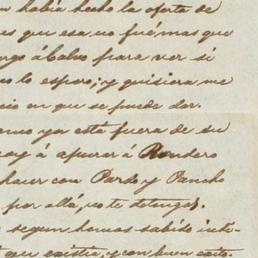 había hecho la oferta de
es que esa no fué mas que
á Calvo para ver si
lo espero; y quisiera me
en que se puede dar.
ya está fuera de su
á apurar á Rondero
hacer con Pardo y Pancho
por allá, no te detengas.
segun hemos sabido inte-
que existia, y con buen éxito.